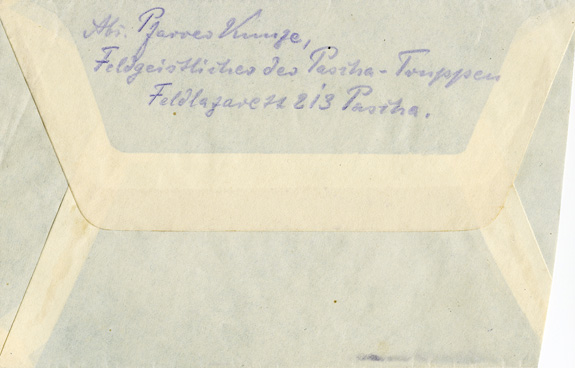 Abs. Pfarrer Kunze,
Feldgeistlicher der Pascha-Truppen
Feldlazarett 213 Pascha.